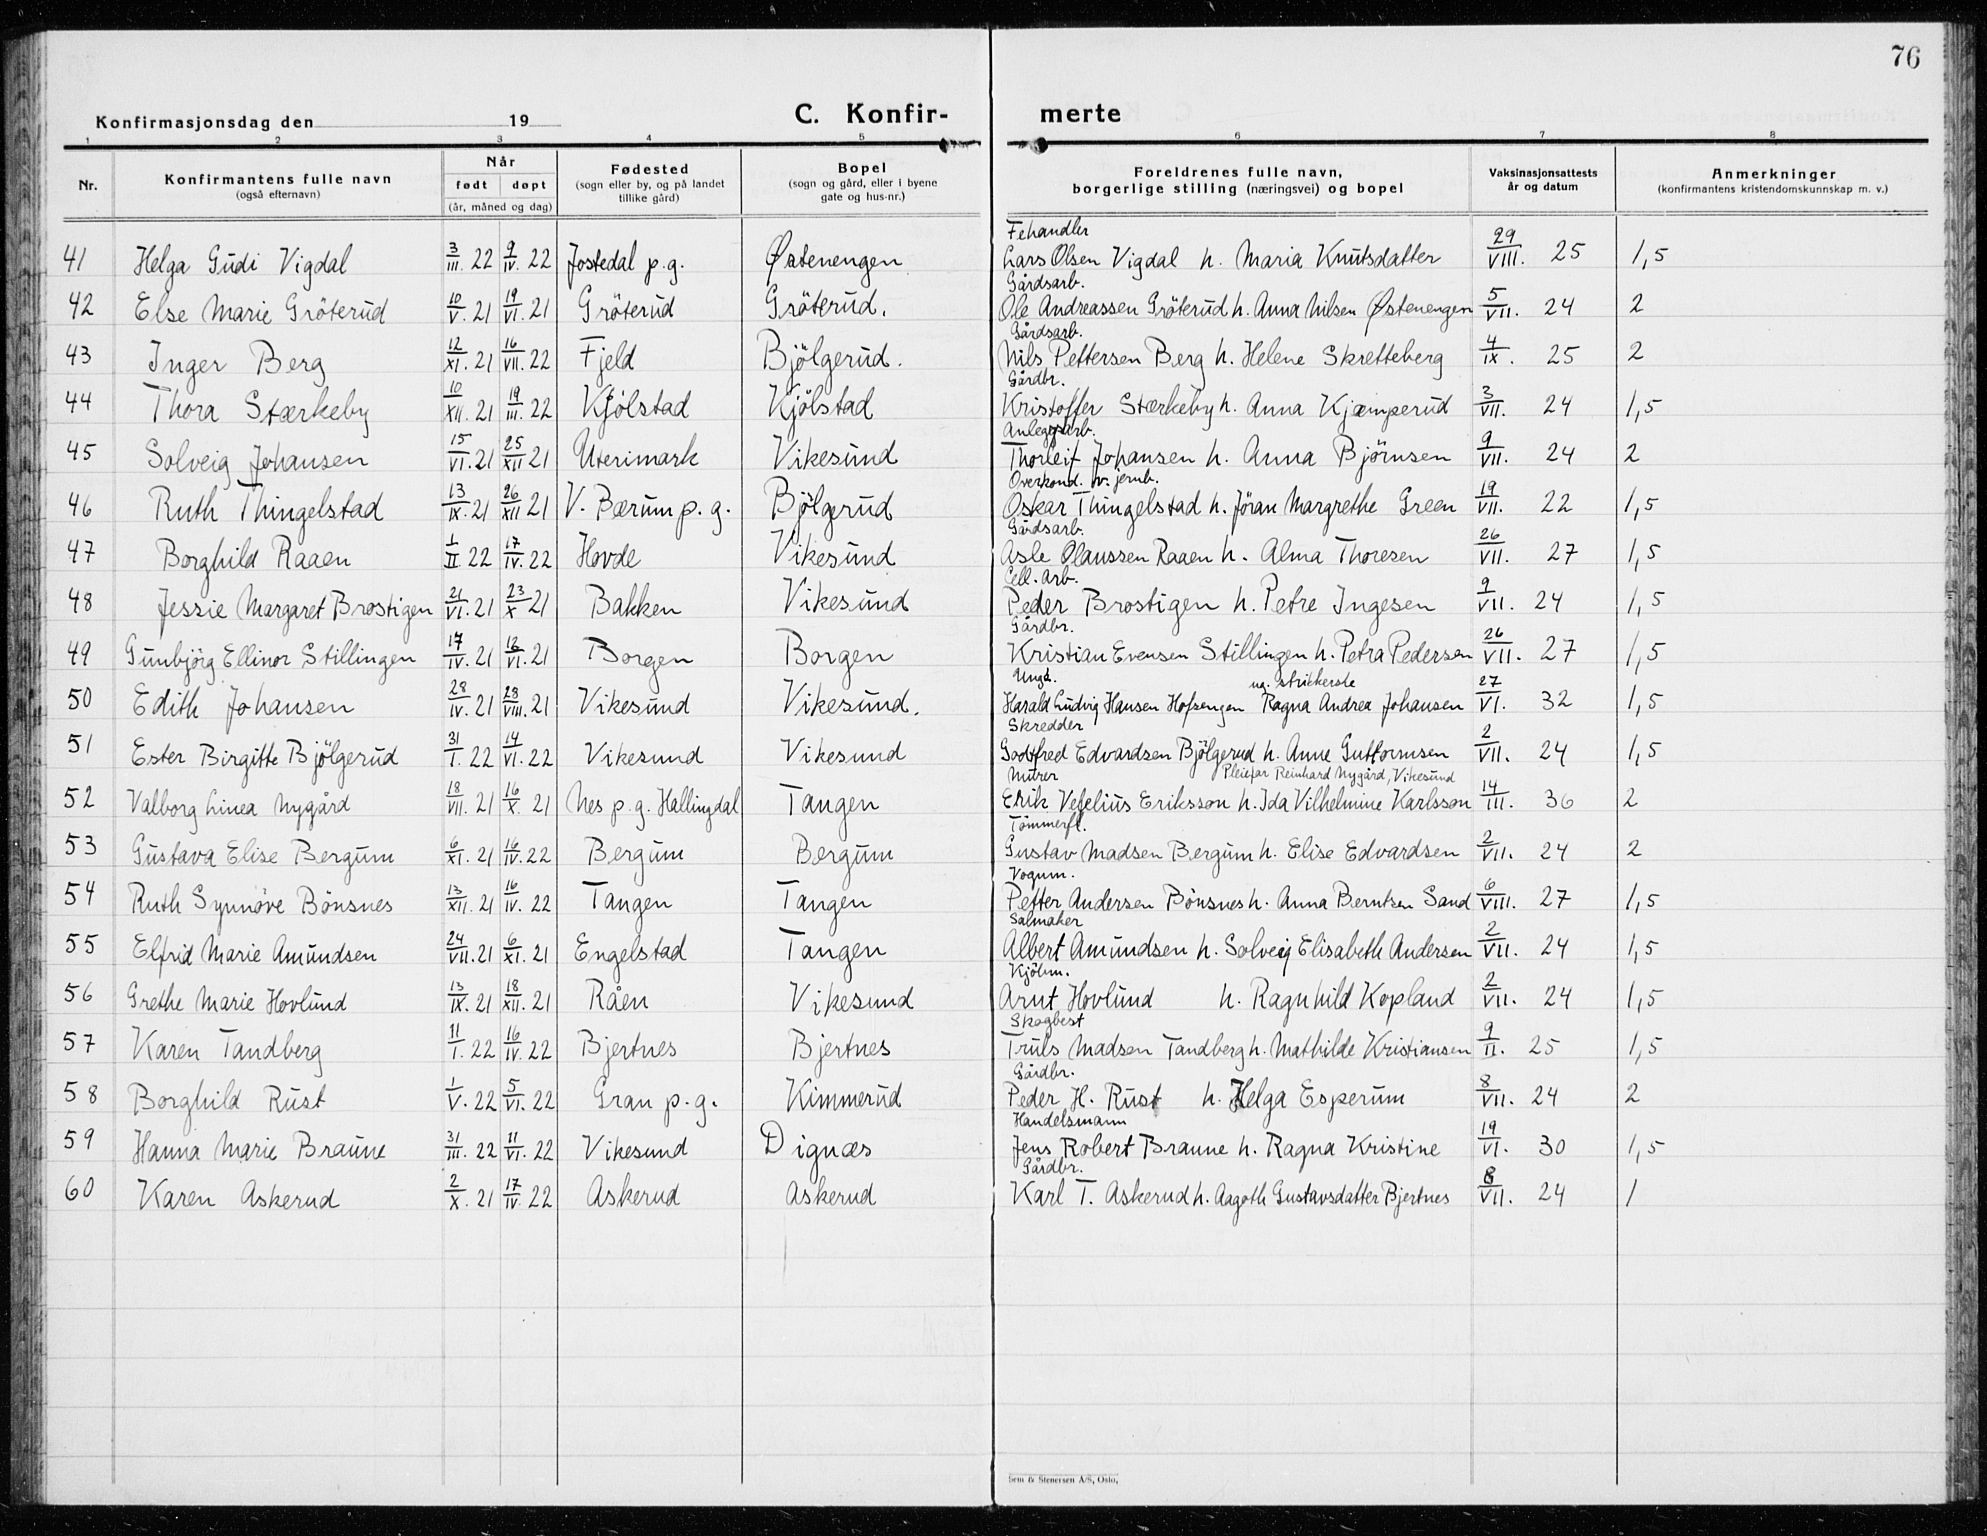 76
Konfirmasjonsdag den 19 C. Konfir- merte
1 2 3 4 5 6 7 8
Nr. Konfirmantens fulle navn (også efternavn) Når født døpt (år, måned og dag) Fødested (sogn eller by, og på landet tillike gård) Bopel (sogn og gård, eller i byene gate og hus-nr.) Foreldrenes fulle navn, borgerlige stilling (næringsvei) og bopel Vaksinasjonsattests år og datum Anmerkninger (konfirmantens kristendomskunnskap m. v.)
Fehandler
41 Helga Gudi Vigdal 3/III. 22 9/IV. 22 Jostedal p.g. Østenengen Lars Olsen Vigdal h. Maria Knutsdatter 29/VIII. 25 1,5
Gårdsarb.
42 Else Marie Gröterud 10/V. 21 19/VI. 21 Gröterud Gröterud. Ole Andreassen Gröterud h. Anna Nilsen Østenengen 5/VII. 24 2
Gårdsarb.
43 Inger Berg 12/XI. 21 16/VII. 22 Fjeld Bjölgerud. Nils Pettersen Berg h. Helene Skretteberg 4/IX. 25 2
Gårdbr.
44 Thora Stærkeby 10/XII. 21 19/III. 22 Kjölstad Kjölstad Kristoffer Stærkeby h. Anna Kjæmperud 3/VII. 24 1,5
Anleggsarb.
45 Solveig Johansen 15/VI. 21 25/XII 21 Uterimark Vikesund Thorleif Johansen h. Anna Björnsen 9/VII. 24 2
Overkond. v. jernb.
46 Ruth Thingelstad 13/IX. 21 26/XII 21 V. Bærum p. g. Bjölgerud Oskar Thingelstad h. Jöran Margrethe Green 19/VII. 22 1,5
Gårdsarb.
47 Borghild Raaen 1/II. 22 17/IV. 22 Hovde Vikesund Asle Olaussen Raaen h. Alma Thoresen 26/VII. 27 1,5
Cell. arb.
48 Jessie Margaret Brostigen 21/VI. 21 23/X 21 Bakken Vikesund Peder Brostigen h. Petre Ingesen 9/VII. 24 1,5
Gårdbr.
49 Gunbjörg Ellinor Stillingen 17/IV. 21 12/VI. 21 Borgen Borgen Kristian Evensen Stillingen h. Petra Pedersen 26/VII. 27 1,5
Ungk. ug. strikkerske
50 Edith Johansen 28/IV. 21 28/VIII. 21 Vikesund Vikesund. Harald Ludvig Hansen Hofsengen Ragna Andrea Johansen 27/VI. 32 1,5
Skredder
51 Ester Birgitte Bjölgerud 31/I. 22 14/VI. 22 Vikesund Vikesund Godtfred Edvardsen Bjölgerud h. Anne Guttormsen 2/VII. 24 1,5
Murer Pleiefar Reinhard Nygård, Vikesund
52 Valborg Linea Nygård 18/VII. 21 16/X. 21 Nes p. g. Hallingdal Tangen Erik Vefelius Eriksson h. Ida Vilhelmine Karlsson 14/III. 36 2
Tömmerfl.
53 Gustava Elise Bergum 6/XI. 21 16/IV. 22 Bergum Bergum Gustav Madsen Bergum h. Elise Edvardsen 2/VII. 24 2
Vognm.
54 Ruth Synnöve Bönsnes 13/XII. 21 16/IV. 22 Tangen Tangen Petter Andersen Bönsnes h. Anna Berntsen Sand 6/VIII. 27 1,5
Salmaker
55 Elfrid Marie Amundsen 24/VII. 21 6/XI. 21 Engelstad Tangen Albert Amundsen h. Solveig Elisabeth Andersen 2/VII. 24 1,5
Kjöbm.
56 Grethe Marie Hovlund 13/IX. 21 18/XII. 21 Råen Vikesund Arnt Hovlund h. Ragnhild Kopland 2/VII. 24 1,5
Skogbest
57 Karen Tandberg 11/I. 22 16/IV. 22 Bjertnes Bjertnes Truls Madsen Tandberg h. Mathilde Kristiansen 9/II. 25 1,5
Gårdbr.
58 Borghild Rust 1/V. 22 5/VI. 22 Gran p. g. Kimmerud Peder H. Rust h. Helga Esperum 8/VII. 24 2
Handelsmann
59 Hanna Marie Braune 31/III. 22 11/VI. 22 Vikesund Dignæs Jens Robert Braune h. Ragna Kristine 19/VI. 30 1,5
Gårdbr.
60 Karen Askerud 2/X. 21 17/IV. 22 Askerud Askerud Karl T. Askerud h. Aagoth Gustavsdatter Bjertnes 8/VII. 24 1
Sem & Stenersen A/S, Oslo,